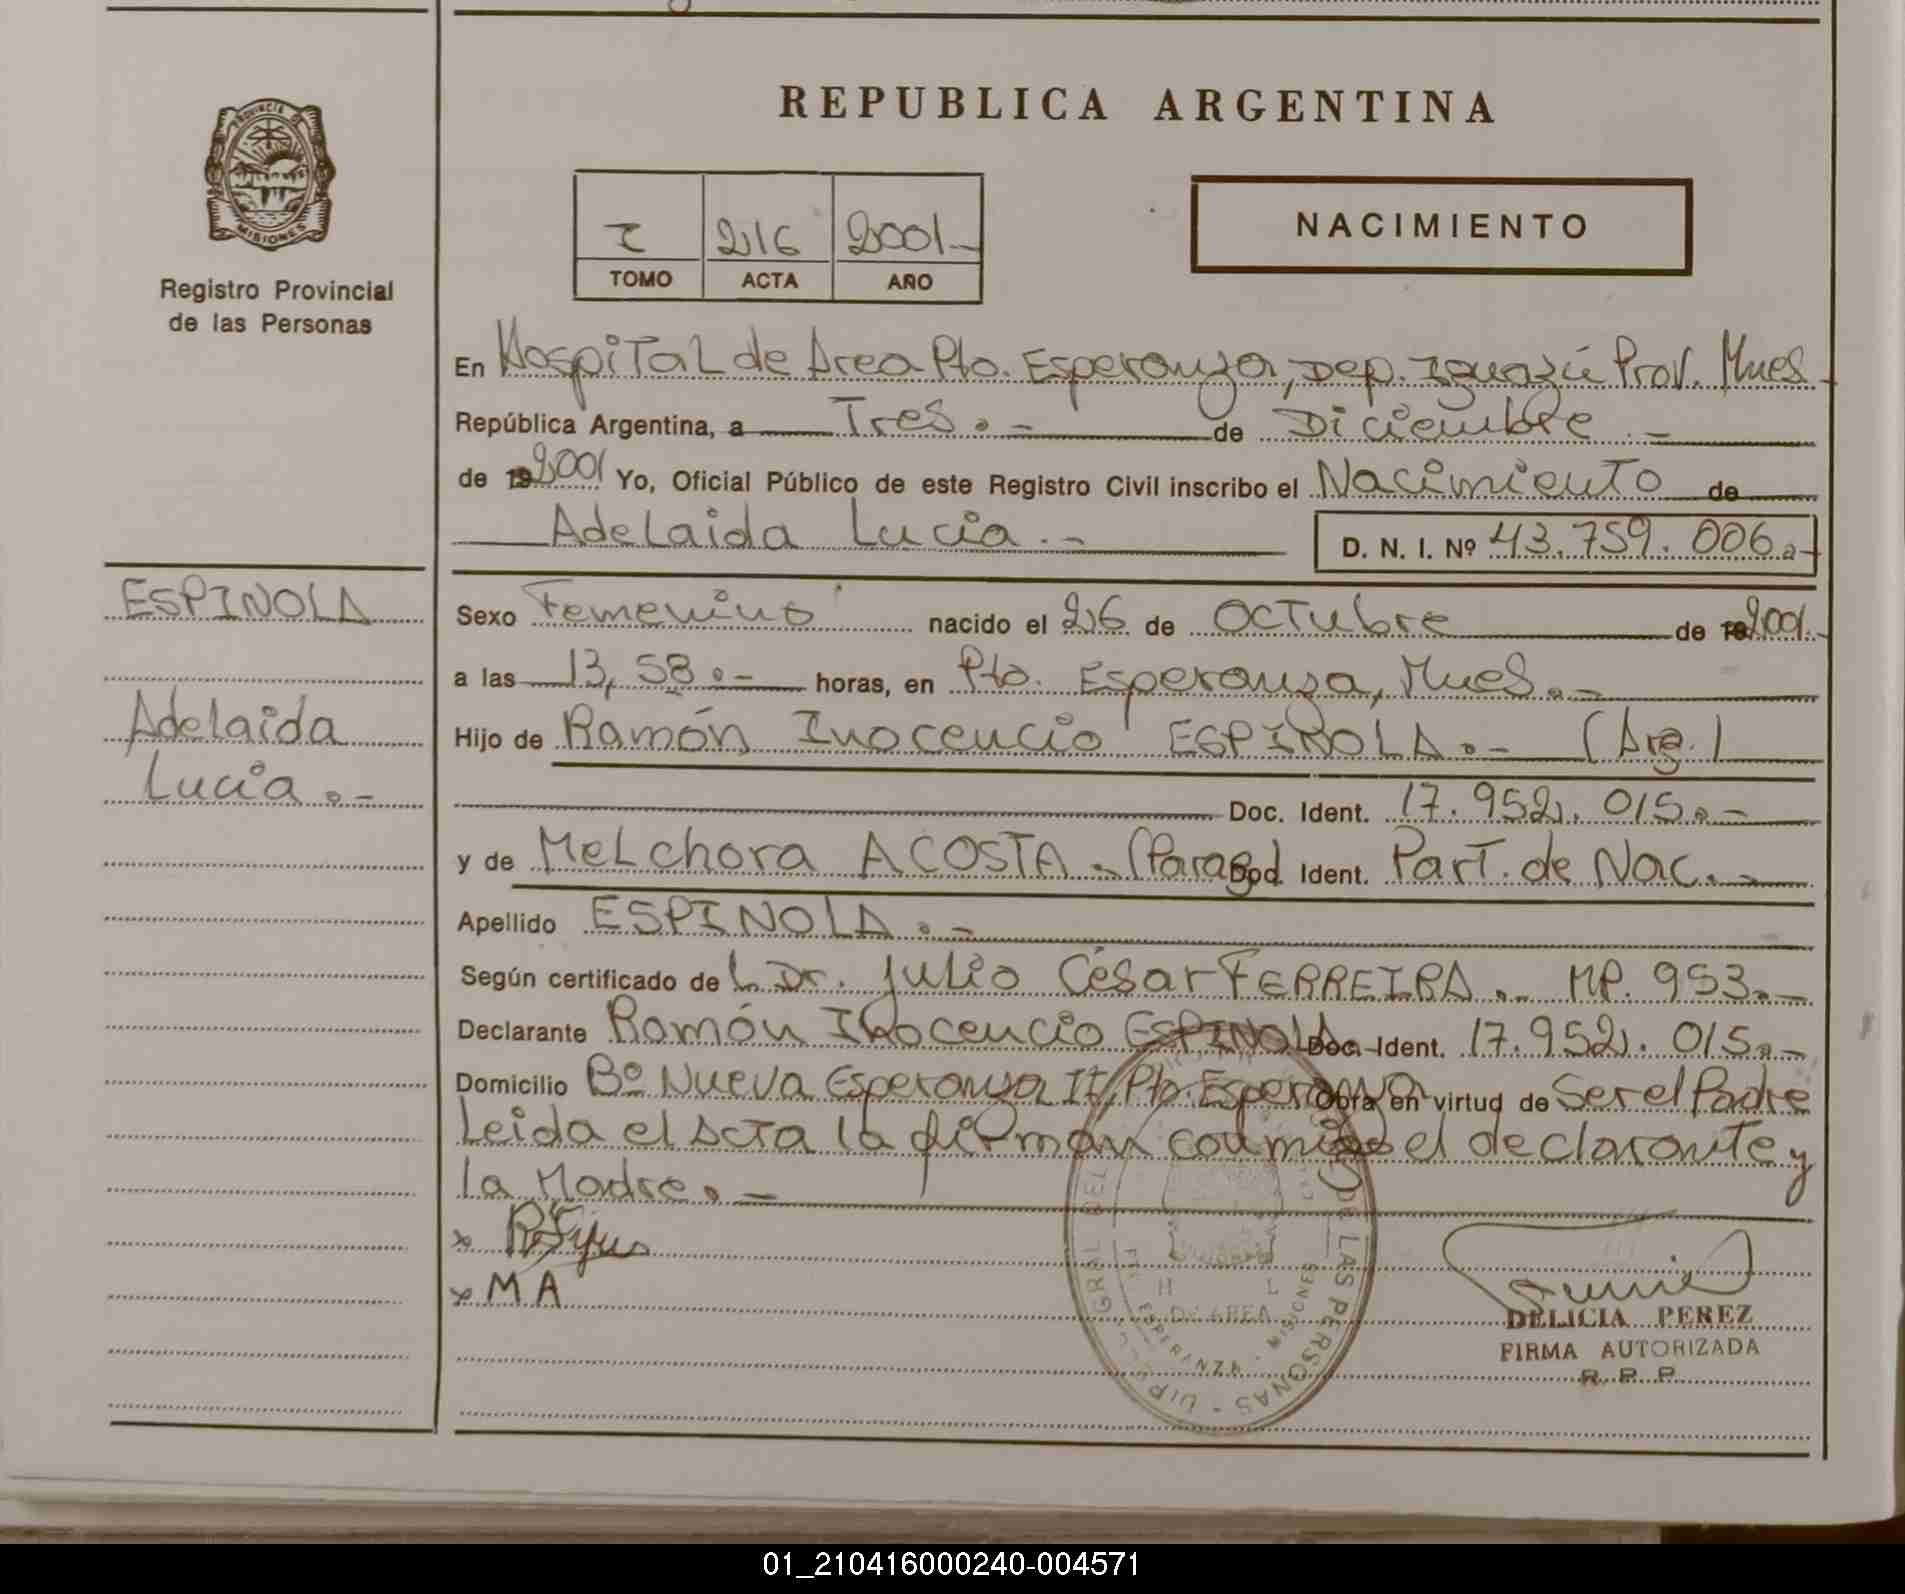 REPUBLICA ARGENTINA
PROVINCIA DE
MISIONES
Registro Provincial
de las Personas
I 216 2001.-
TOMO ACTA AÑO
NACIMIENTO
En Hospital de Area Pto. Esperanza, Dep. Iguazú Prov. Mnes.
República Argentina, a Tres.- de Diciembre.-
de 19 2001 Yo, Oficial Público de este Registro Civil inscribo el Nacimiento de
Adelaida Lucia.- D. N. I. Nº 43.759.006.-
ESPINOLA
Adelaida
Lucia.-
Sexo Femenino nacido el 26 de Octubre de 19 2001.-
a las 13,58.- horas, en Pto. Esperanza, Mnes.-
Hijo de Ramón Inocencio ESPINOLA.- (Arg.)
Doc. Ident. 17.952.015.-
y de Melchora ACOSTA.- (Parag) Doc. Ident. Part. de Nac.-
Apellido ESPINOLA.-
Según certificado de L. Dr. Julio César FERREIRA.- MP. 953.-
Declarante Ramón Inocencio ESPINOLA Doc. Ident. 17.952.015.-
Domicilio Bº Nueva Esperanza II, Pto. Esperanza Obra en virtud de Ser el Padre
Leida el Acta la firman conmigo el declarante y
la Madre.-
x
x MA
DE LAS PERSONAS
DE AREA
ESPERANZA - MISIONES
DELICIA PEREZ
FIRMA AUTORIZADA
R. P. P.
01_210416000240-004571